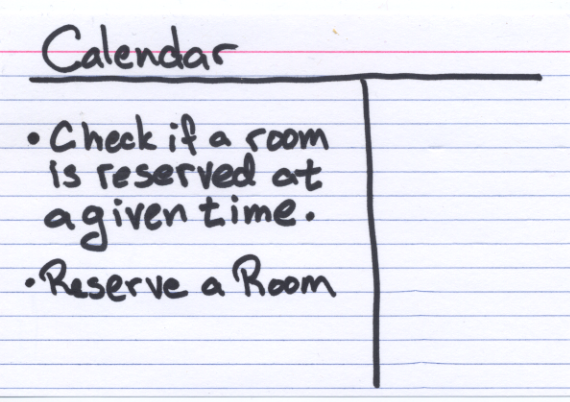 Calendar
• Check if a room
is reserved at
a given time.
• Reserve a Room